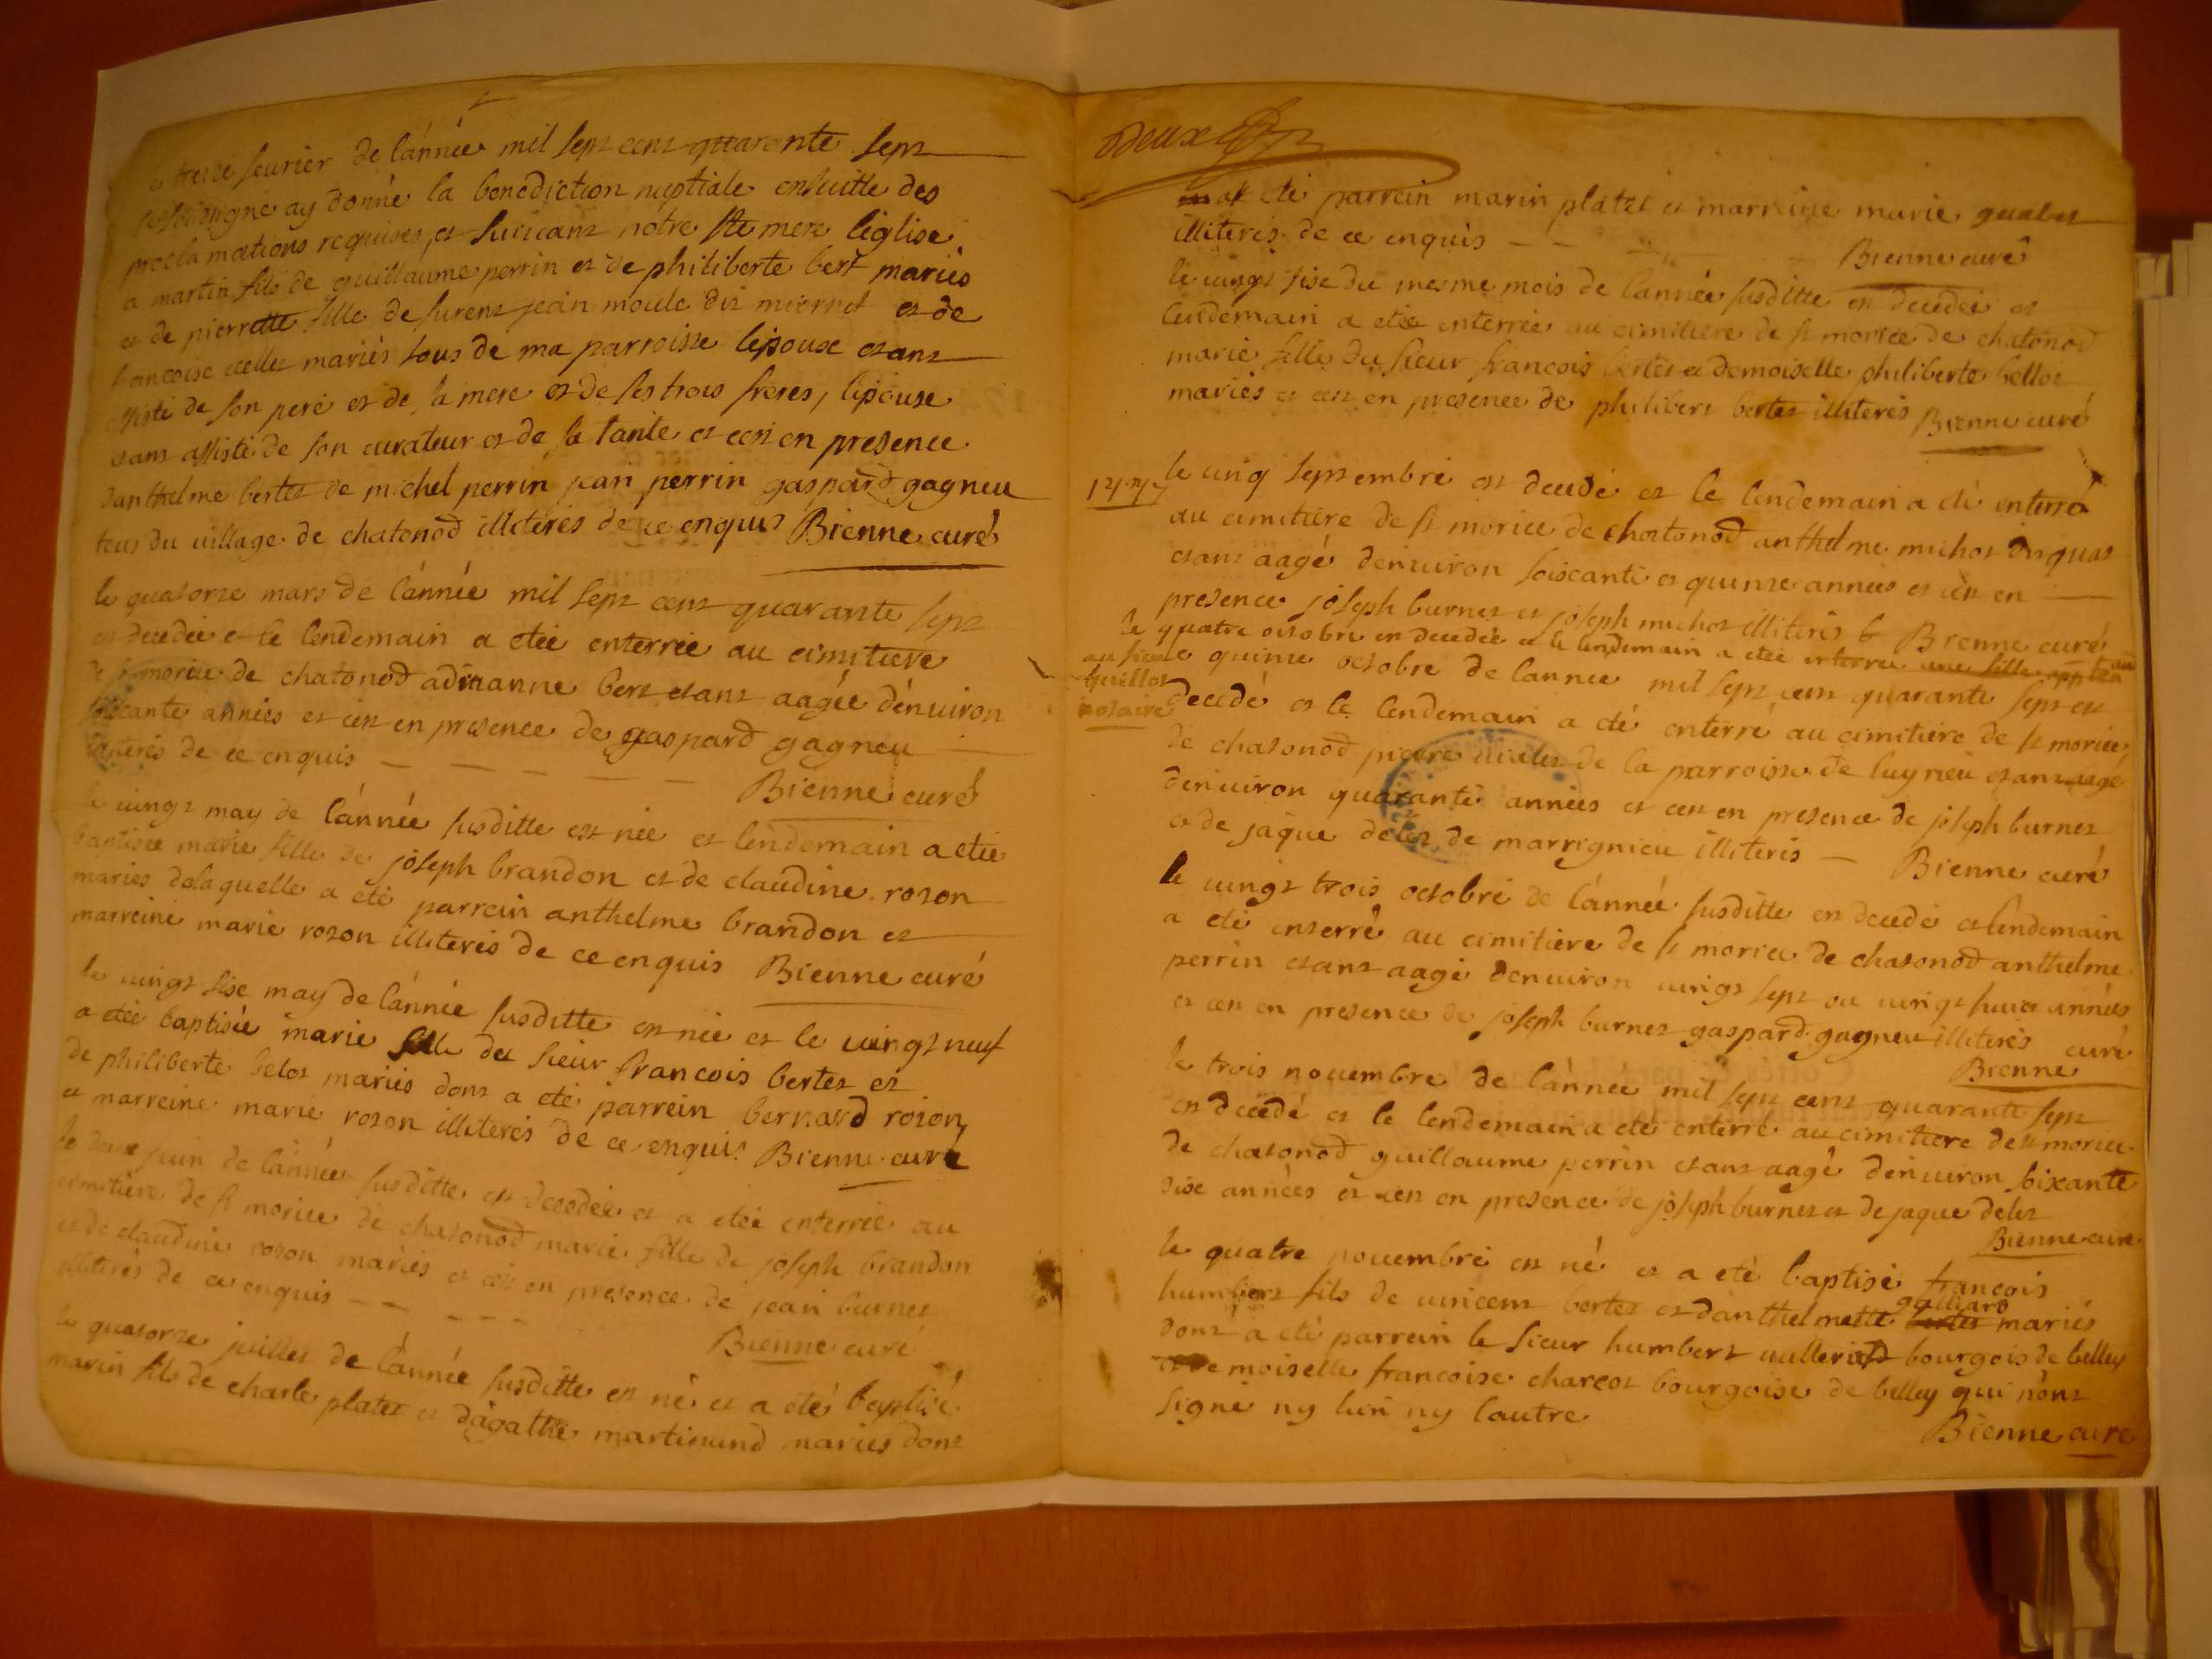 le treize feurier de lánnée mil sept cent quarante sept
soussigné ay donné la benediction nuptiale ensuitte des
proclamations requises, et suiuant notre ste mere léglise
a martin fils de guillaume perrin et de philiberte bert mariés
et de pierrette fille de furent jean moule dit mierret et de
francoise mariés tous de ma parroisse lépoux etant
assisté de son peré et de sa mere et de ses trois fréres, lépouse
etant assisté de son curateur et de sa tante et cest en presence
danthelme bertet de michel perrin jean perrin gaspard gagneu
tous du uillage de chatonod illiterés de ce enquis Bienne curé
le quatorze mars de lánnée mil sept cent quarante sept
est decedée et le lendemain a etée enterrée au cimitiere
de st morice de chatonod bert etant aagée dénuiron
soixcante années et cést en presence de gaspard gagneu
illiterés de ce enquis
Bienne curé
le uingt may de lánnée susditte est née et lendemain a etée
baptisée marie fille de joseph brandon et de claudine roson
mariés dela quelle a eté parrein anthelme brandon et
marreine marie roson illiterés de ce enquis Bienne curé
le uingt sise may de lánnée susditte est née et le uingt neuf
a etée baptisée marie fille du sieur francois bertet et
de philiberte belot mariés dont a eté parrein bernard roson
et marreine marie roson illiterés de ce enquis Bienne curé
le deux juin de lánnée susditte est decedée et a etée enterrée au
cimitiere de st morice de chatonod marie fille de joseph brandon
et de claudine roson mariés et cést en presence de jean burnet
illiterés de ce enquis
Bienne curé
le quatorze juillet de lánnée susditte est né et a eté baptisé
marin fils de charle platet et dágathe martinand mariés dont
Deux
a eté parrein marin platet et marreine marie
illiterés de ce enquis
Bienne curé
le uingt sise du mesme mois de lánnée susditte est decedée et
lendemain a etée enterrée au cimitiere de st morice de chatonod
marie fille du sieur francois bertet et demoiselle philiberte bellot
mariés et cest en presence de philibert bertet illiterés Bienne curé
1747
le cinq septembre est decedé et le lendemain a eté enterré
au cimitiere de st morice de chatonod anthelme michot
etant aagé denuiron soixcante et quinze années et cést en
presence joseph burnet et joseph michot illiterés Bienne curé
le quatre octobre est decedée et le lendemain a etée enterrée une fille
au sieur guillot notaire
le quinze octobre de lannée mil sept cent quarante sept est
decedé et le lendemain a eté enterré au cimitiere de st morice
de chatonod pierre de la parroisse de luyrieu etant aagé
denuiron quarante années et cest en presence de joseph burnet
et de jaque delet de marrignieu illiterés Bienne curé
le uingt trois octobre de lánnée susditte est decedé et lendemain
a eté enterré au cimitiere de st morice de chatonod anthelme
perrin etant aagé denuiron uingt sept ou uingt huict années
et cest en presence de joseph burnet gaspard gagneu illiterés curé
Bienne
le trois nouembre de lánnée mil sept cent quarante sept
est decedé et le lendemain a eté enterré au cimitiere de st morice
de chatonod guillaume perrin etant aagé denuiron soixante
sise années et cest en presence de joseph burnet et de jaque delet
Bienne curé
le quatre nouembre est né et a eté baptisé francois
humbert fils de uincent bertet et danthelmette galliard mariés
dont a eté parrein le sieur humbert bourgois de belley
et demoiselle francoise charcot bourgoise de belley qui nont
signé ny lun ny lautre
Bienne curé